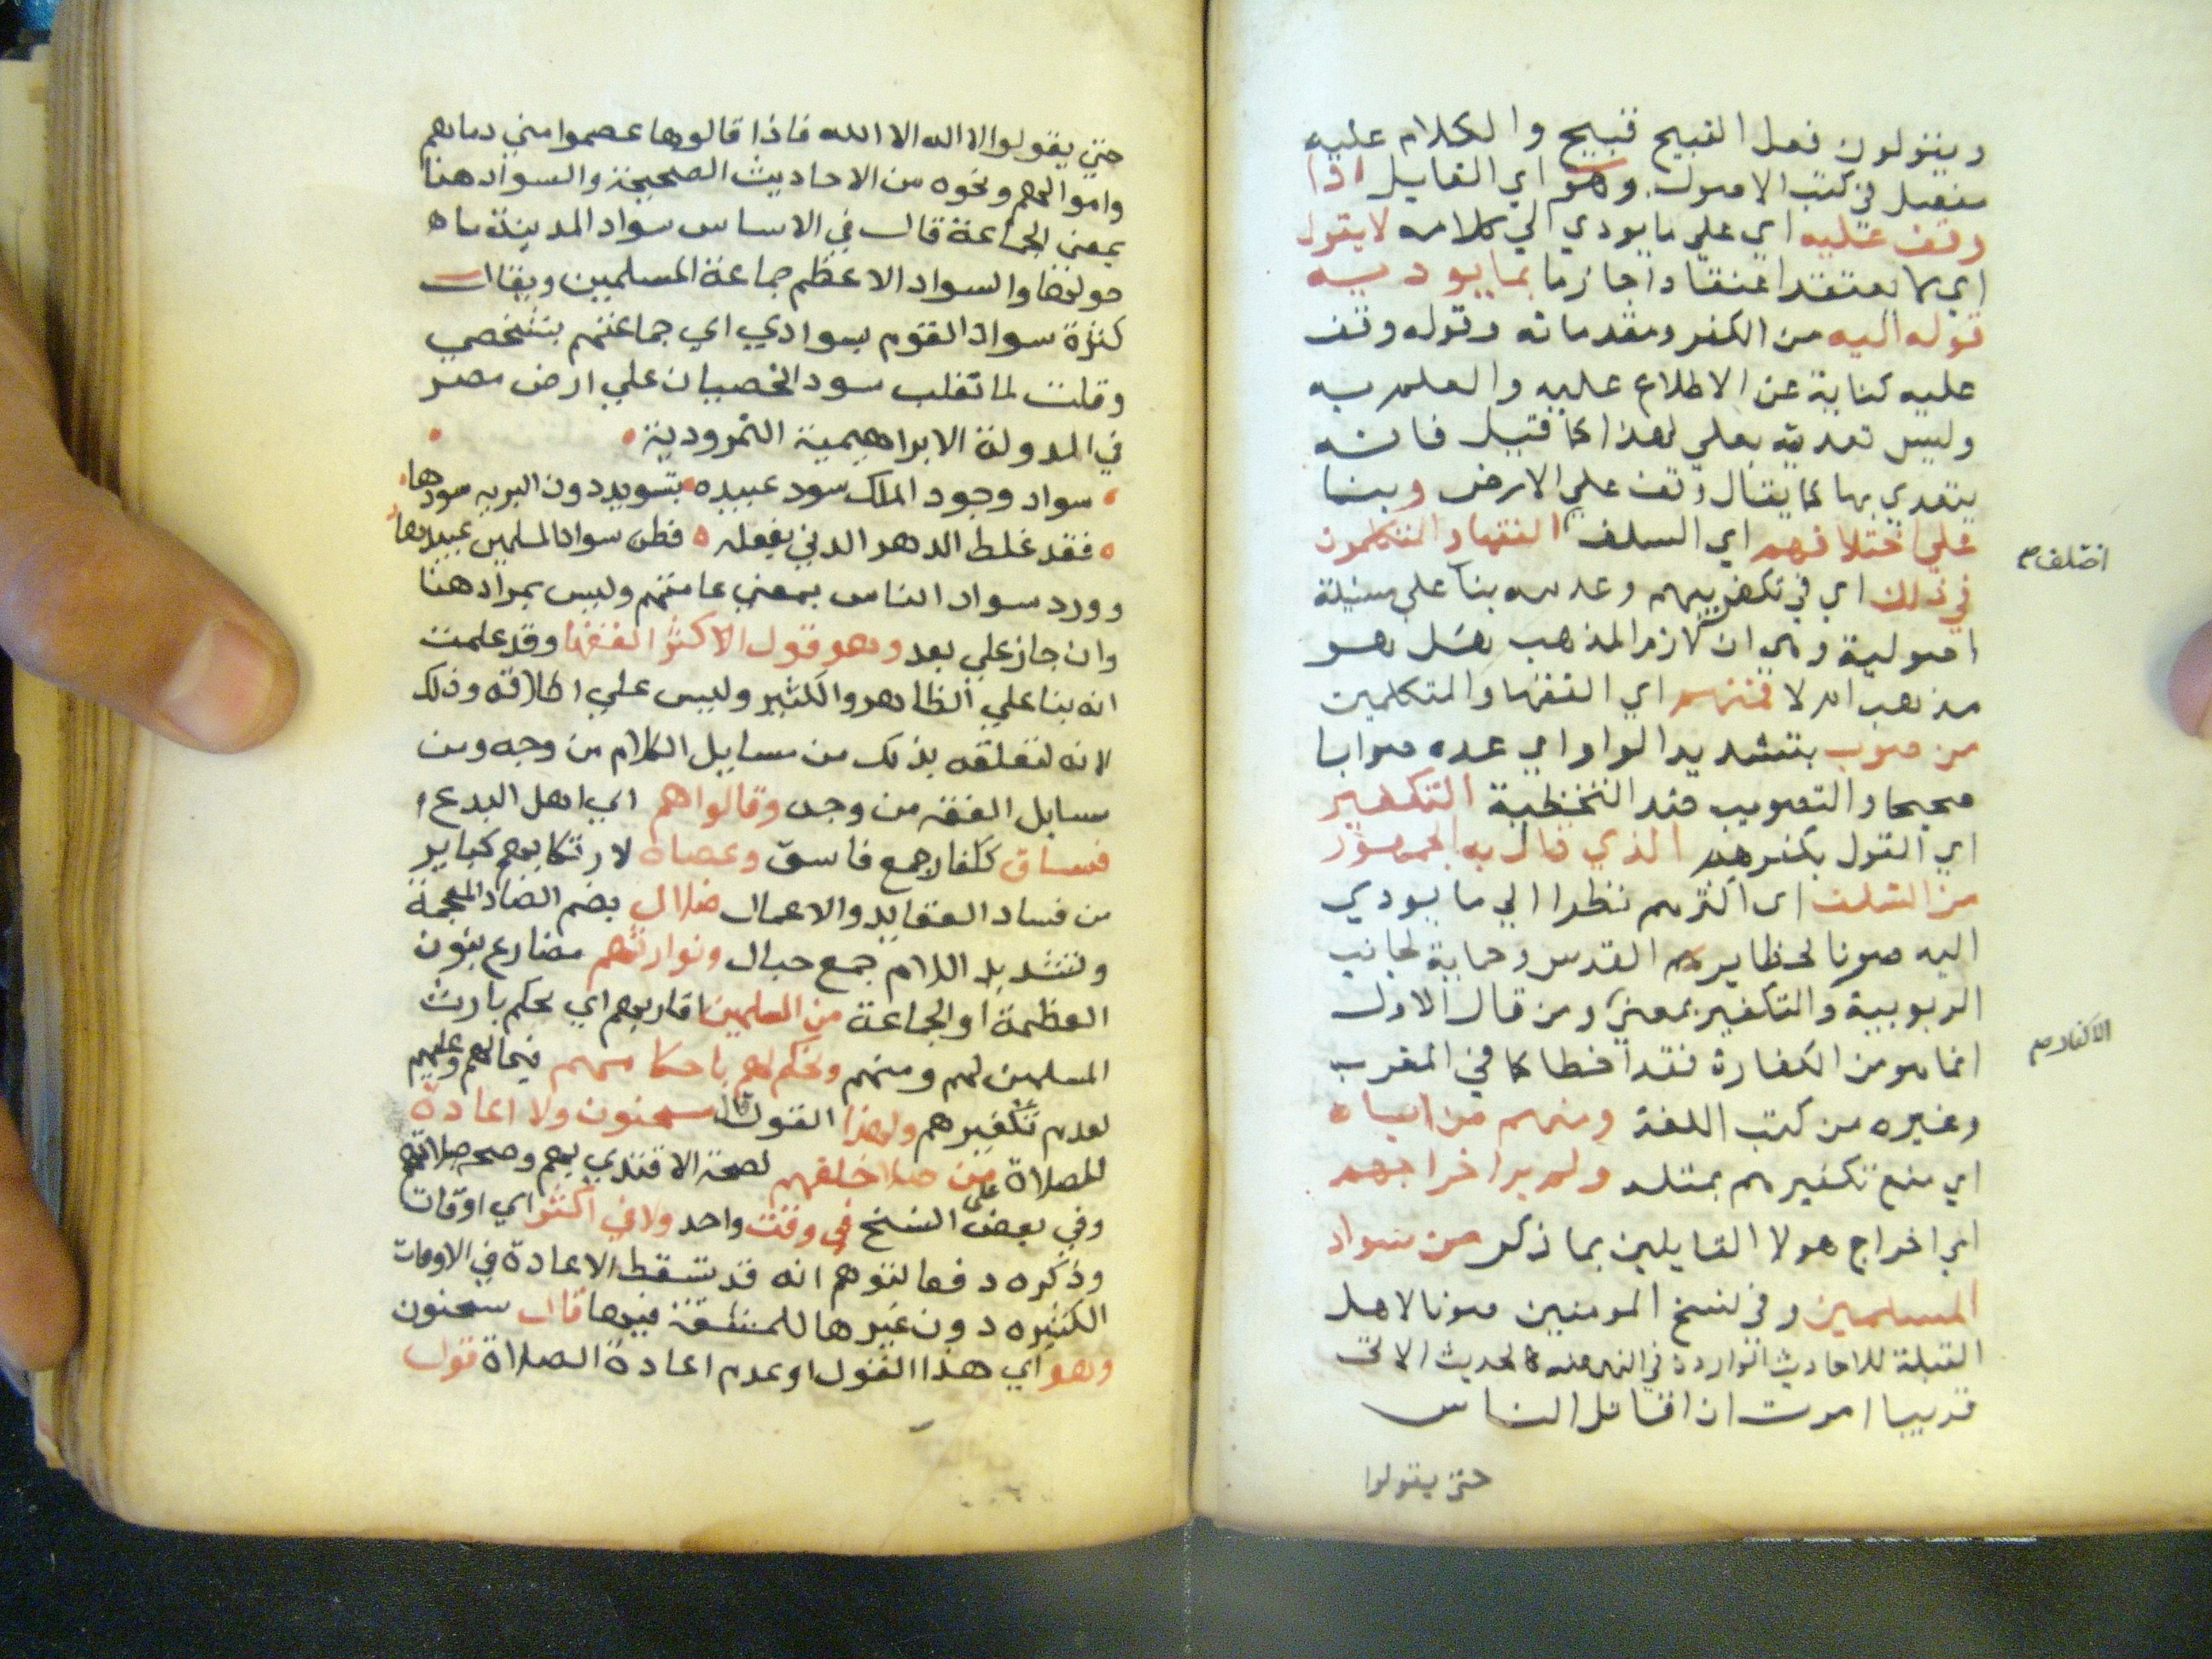 ويقولون فعل القبيح قبيح والكلام عليه
مفصل في كتب الاصول وهو اي القايل اذا
وقف عليه اي علي ما يودي الي كلامه لا يقول
اي لا يعتقد اعتقادا جازما بما يوديه
قوله اليه من الكفر ومقدماته وقوله وقف
عليه كناية عن الاطلاع عليه والعلم به
وليس تعديته بعلي لهذا كما قيل فانه
يتعدي بها كما يقال وقف علي الارض وبنا
علي اختلافهم اي السلف الفقها والمتكلمون
اختلف
في ذلك اي في تكفيرهم وعدمه بنا علي مسئلة
اصولية وهي ان لازم المذهب هل هو
مذهب ام لا فمنهم اي الفقها والمتكلمين
من صوب بتشديد الواو اي عده صوابا
صحيحا والتصويب ضد التخطية التكفير
اي القول بكفرهم الذي قال به الجمهور
من السلف اي اكثرهم نظرا الي ما يودي
اليه صونا لحظاير القدس وحماية لجانب
الربوبية والتكفير بمعني ومن قال الاول
الاكفار
انما هو من الكفارة فقد اخطا كما في المغرب
وغيره من كتب اللغة ومنهم من اباه
اي منع تكفيرهم بمثله ولم ير اخراجهم
اي اخراج هولا القايلين بما ذكر من سواد
المسلمين وفي نسخ المومنين صونا لاهل
القبلة للاحاديث الواردة في النهي عنه كالحديث الاتي
قريبا امرت ان اقاتل الناس
حتي يقولوا
حتي يقولوا لا اله الا الله فاذا قالوها عصموا مني دماهم
واموالهم ونحوه من الاحاديث الصحيحة والسواد هنا
بمعني الجماعة قال في الاساس سواد المدينة ما
حولها والسواد الاعظم جماعة المسلمين ويقال
كثرة سواد القوم بسوادي اي جماعتهم بشخصي
وقلت لما تغلب سود الخصيان علي ارض مصر
في الدولة الابراهيمية النمرودية
سواد وجود الملك سود عبيده بتسويد دون البريه سودها
فقد غلط الدهر الدني بفعله فظن سواد المسلمين عبيدها
وورد سواد الناس بمعني عامتهم وليس بمراد هنا
وان جاز علي بعد وهو قول الاكثر الفقها وقد علمت
انه بنا علي الظاهر والكثير وليس علي اطلاقه وذلك
لانه لتعلقه بذلك من مسايل الكلام من وجه ومن
مسايل الفقه من وجه وقالوا هم اي اهل البدع
فساق ككفار جمع فاسق وعصاة لارتكابهم كباير
من فساد العقايد والاعمال ضلال بضم الضاد المعجمة
وتشديد اللام جمع ضال ونوارثهم مضارع بنون
العظمة او الجماعة من المسلمين اقاربهم اي نحكم بارث
المسلمين لهم ومنهم ونحكم لهم باحكامهم فيما لهم وعليهم
لعدم تكفيرهم ولهذا القول قال سحنون ولا اعادة
للصلاة علي من صلا خلفهم لصحة الاقتدي بهم وصحه صلاتهم
وفي بعض النسخ في وقت واحد ولا في اكثر اي اوقات
وذكره دفعا لتوهم انه قد تسقط الاعادة في الاوقات
الكثيره دون غيرها للمشقة فيها قال سحنون
وهو اي هذا القول او عدم اعادة الصلاة قول